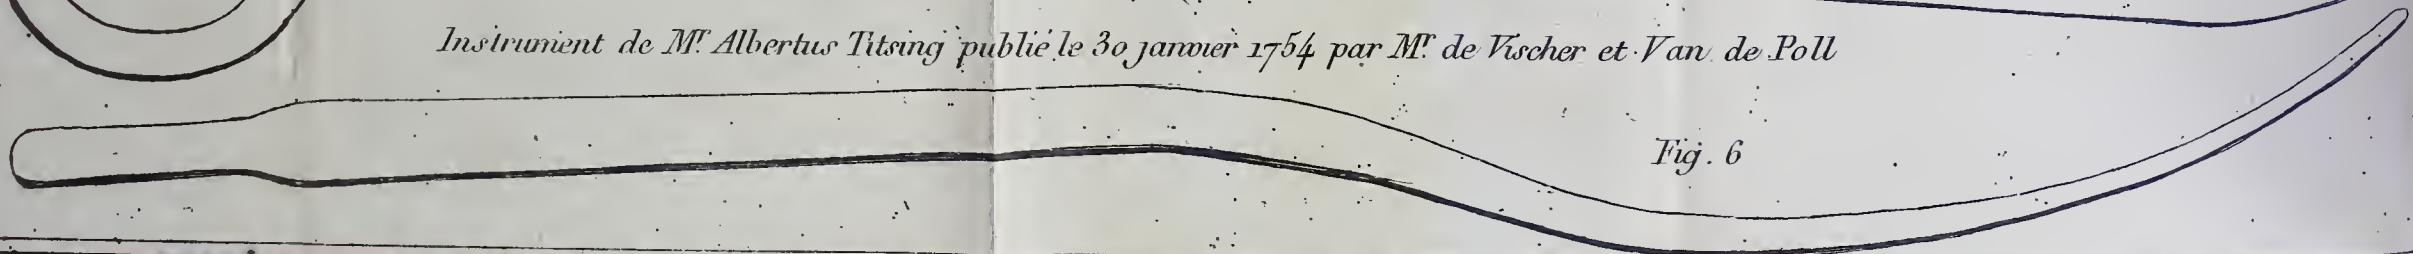 Instrument de Mr. Albertus Titsing publié le 30 janvier 1754 par Mr. de Vischer et Van de Poll
Fig. 6